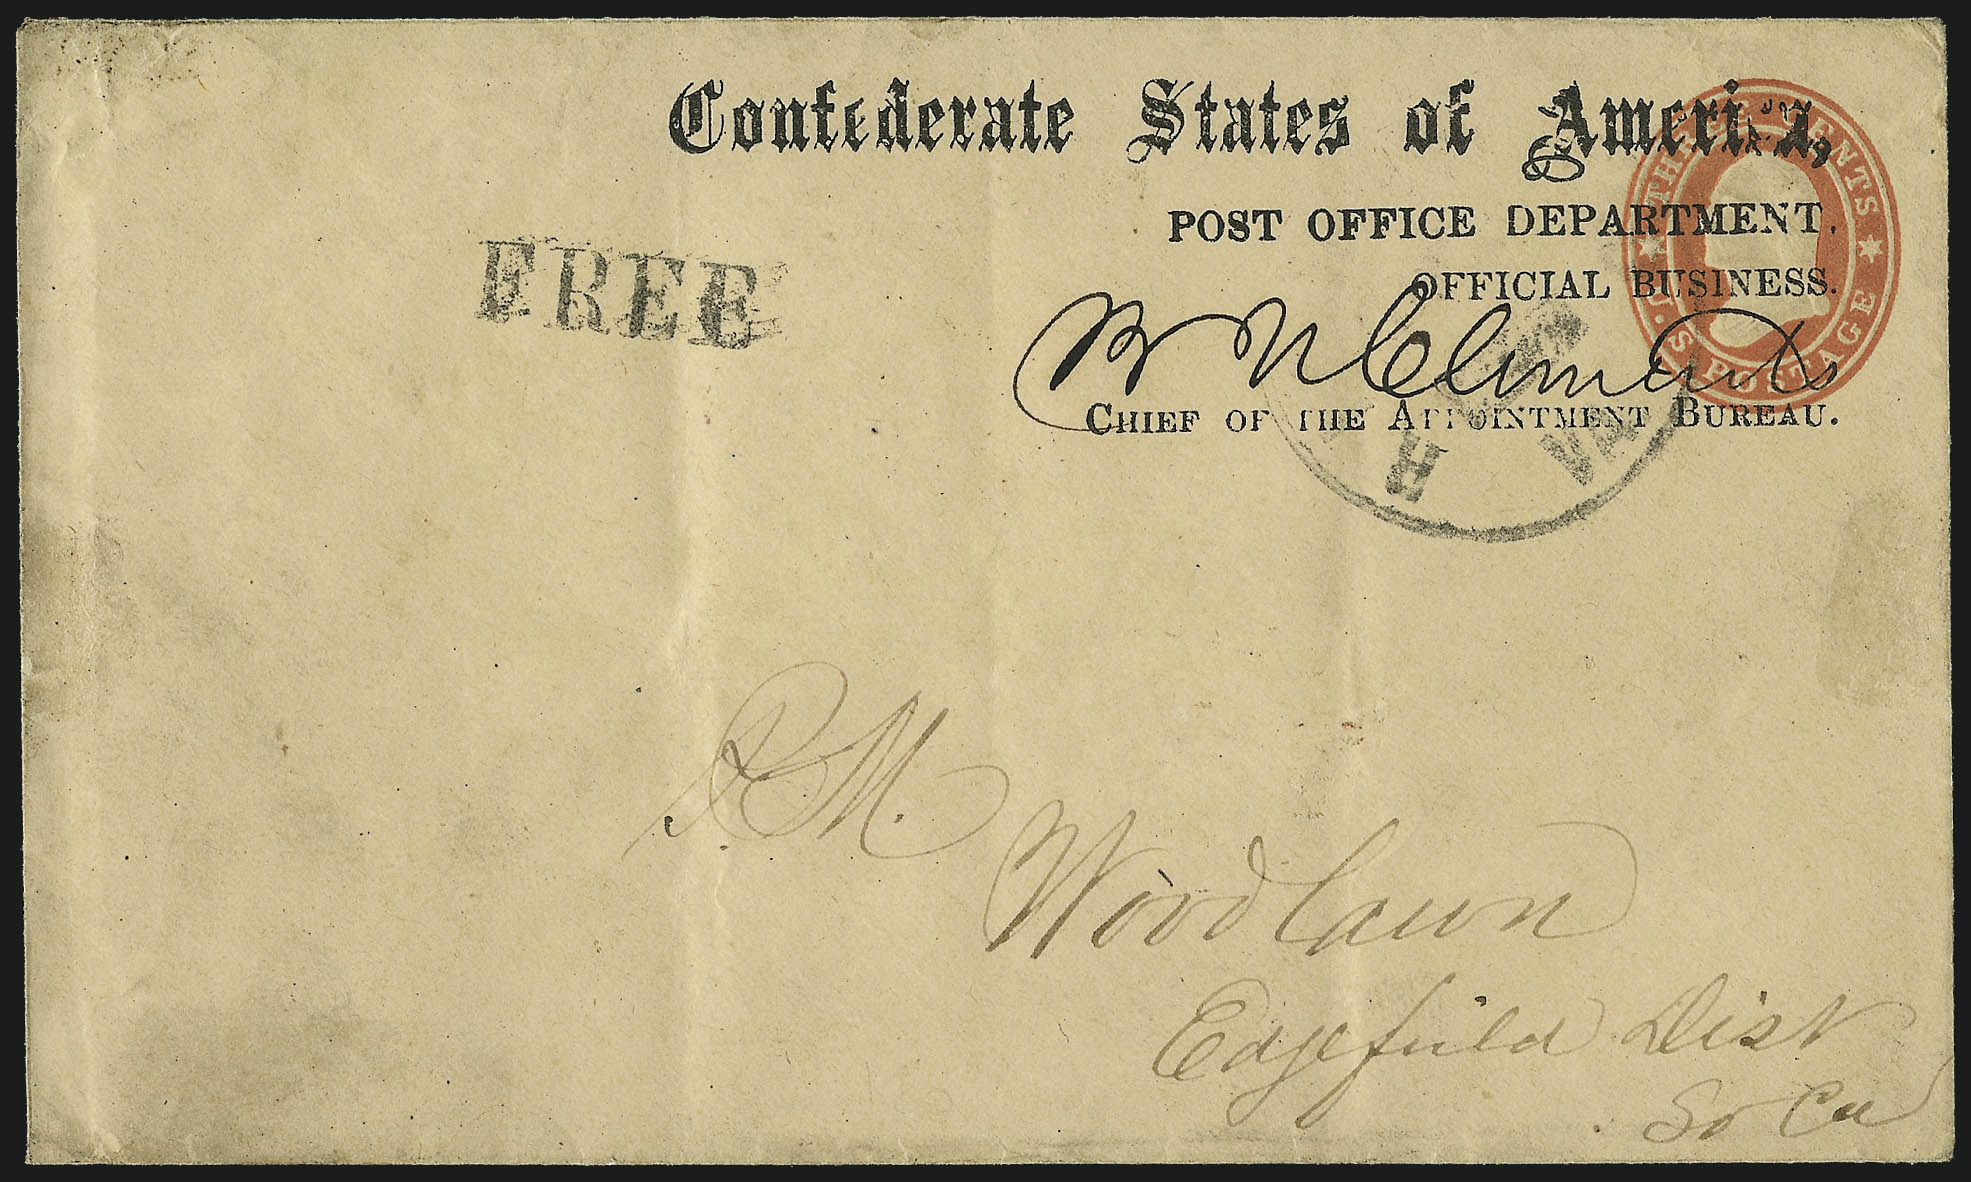 Confederate States of America,
THREE CENTS
U.S. POSTAGE
POST OFFICE DEPARTMENT.
OFFICIAL BUSINESS.
FREE
B N Clements
CHIEF OF THE APPOINTMENT BUREAU.
R VA
P.M.
Woodlawn
Edgefield Dist
So Ca